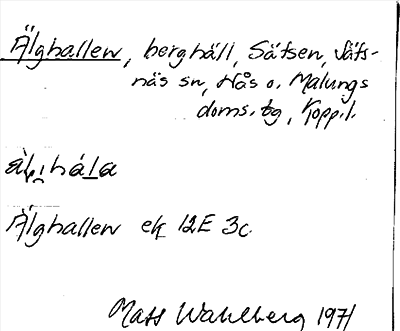 Älghallen, berghäll, Sätsen, Säfs-
näs sn, Nås o. Malungs
doms. tg, Kopp. l.
Älghallen ek 12E 3c
Mats Wahlberg 1971